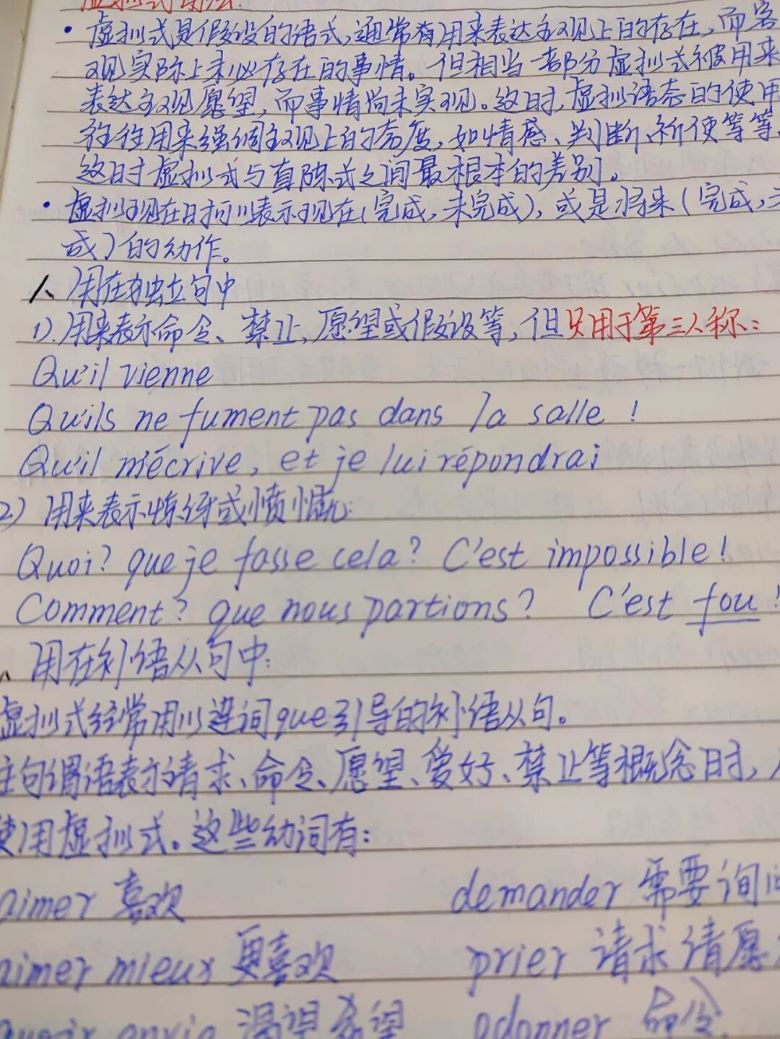 虚拟式用法:
• 虚拟式是假设的语式,通常有用来表达主观上的存在,而客
观实际上未必存在的事情。但相当一部分虚拟式被用来
表达主观愿望,而事情尚未实现。这时,虚拟语态的使用
往往用来强调主观上的态度,如情感、判断、祈使等等
这时虚拟式与直陈式之间最根本的差别。
• 虚拟现在时可以表示现在(完成,未完成),或是将来(完成,
成)的动作。
用在独立句中
1).用来表示命令、禁止,愿望或假设等,但只用于第三人称:
Qu'il vienne
Qu'ils ne fument pas dans la salle !
Qu'il m'écrive, et je lui répondrai
2) 用来表示惊讶或愤慨:
Quoi? que je fasse cela? C'est impossible!
Comment? que nous partions? C'est fou!
用在补语从句中:
虚拟式经常用以连词que引导的补语从句。
主句谓语表示请求、命令、愿望、爱好、禁止等概念时,
使用虚拟式。这些动词有:
aimer 喜欢 demander 需要 询问
aimer mieux 更喜欢 prier 请求 请愿
avoir envie 渴望 希望 odonner 命令